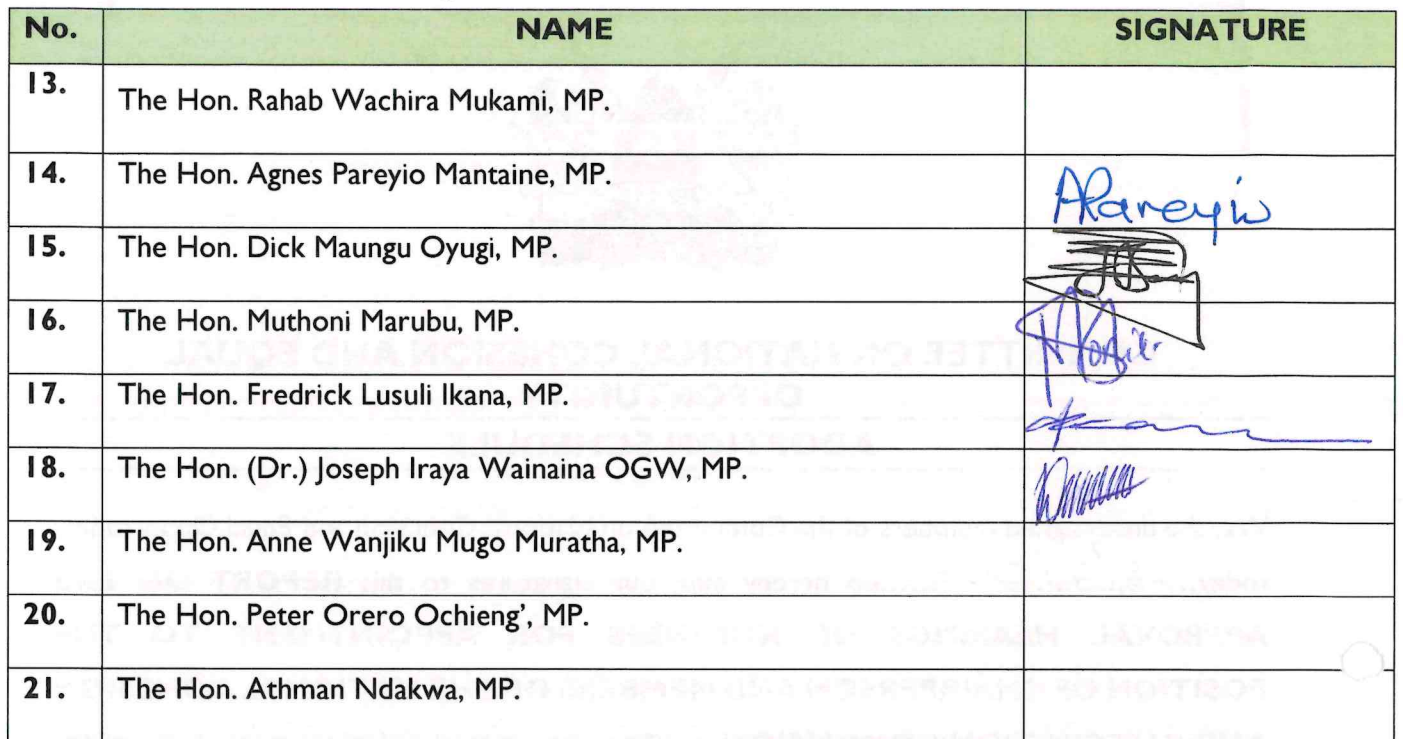 No. NAME SIGNATURE
13. The Hon. Rahab Wachira Mukami, MP.
14. The Hon. Agnes Pareyio Mantaine, MP. APareyio
15. The Hon. Dick Maungu Oyugi, MP.
16. The Hon. Muthoni Marubu, MP.
17. The Hon. Fredrick Lusuli Ikana, MP.
18. The Hon. (Dr.) Joseph Iraya Wainaina OGW, MP.
19. The Hon. Anne Wanjiku Mugo Muratha, MP.
20. The Hon. Peter Orero Ochieng’, MP.
21. The Hon. Athman Ndakwa, MP